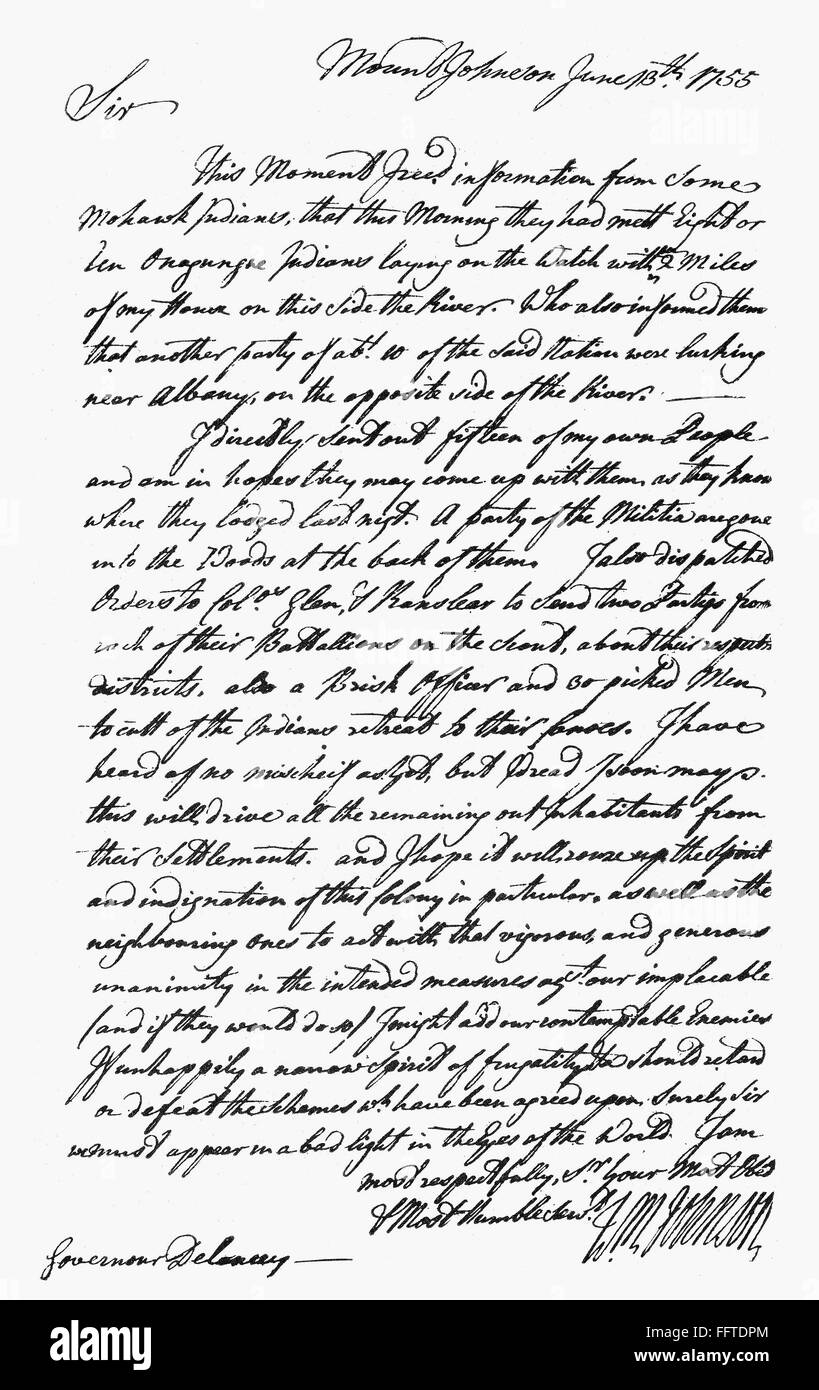 Mount Johnson June 13th. 1755
Sir
This Moment I recd. information from Some
Mohawk Indians, that this Morning they had mett Eight or
Ten Onagungue Indians laying on the Watch within 2 Miles
of my House on this side the River. Who also informed them
that another party of abt. 10 of the said Nation were lurking
near Albany, on the opposite side of the River.
I directly sent out fifteen of my own People
and am in hopes they may come up with them, as they know
where they lodged last nigt. A party of the Militia are gone
into the Woods at the back of them. I also dispatched
Orders to Colos. Glen, & Ranslear to send two Partys from
each of their Battallions on the Scout, about their respective
districts. also a Brisk Officer and 30 picked Men
to cutt of the Indians retreat to their Canoes. I have
heard of no mischeif as Yet, but I dread I soon may.
this will drive all the remaining out Inhabitants from
their Settlements. and I hope it will rouze up the Spirit
and indignation of this Colony in particular, as well as the
neighbouring ones to act with that vigorous, and generous
unanimity in the intended measures agst. our implacable
(and if they would do so) I might add our contemptable Enemies
If unhappily a narrow Spirit of frugality &a should retard
or defeat the Schemes wh. have been agreed upon, Surely Sir
we must appear in a bad light in the Eyes of the World. I am
most respectfully, Sr. Your Most Obed
& Most Humble Servt.
Wm Johnson
Governour Delancey
alamy
Image ID: FFTDPM
www.alamy.com